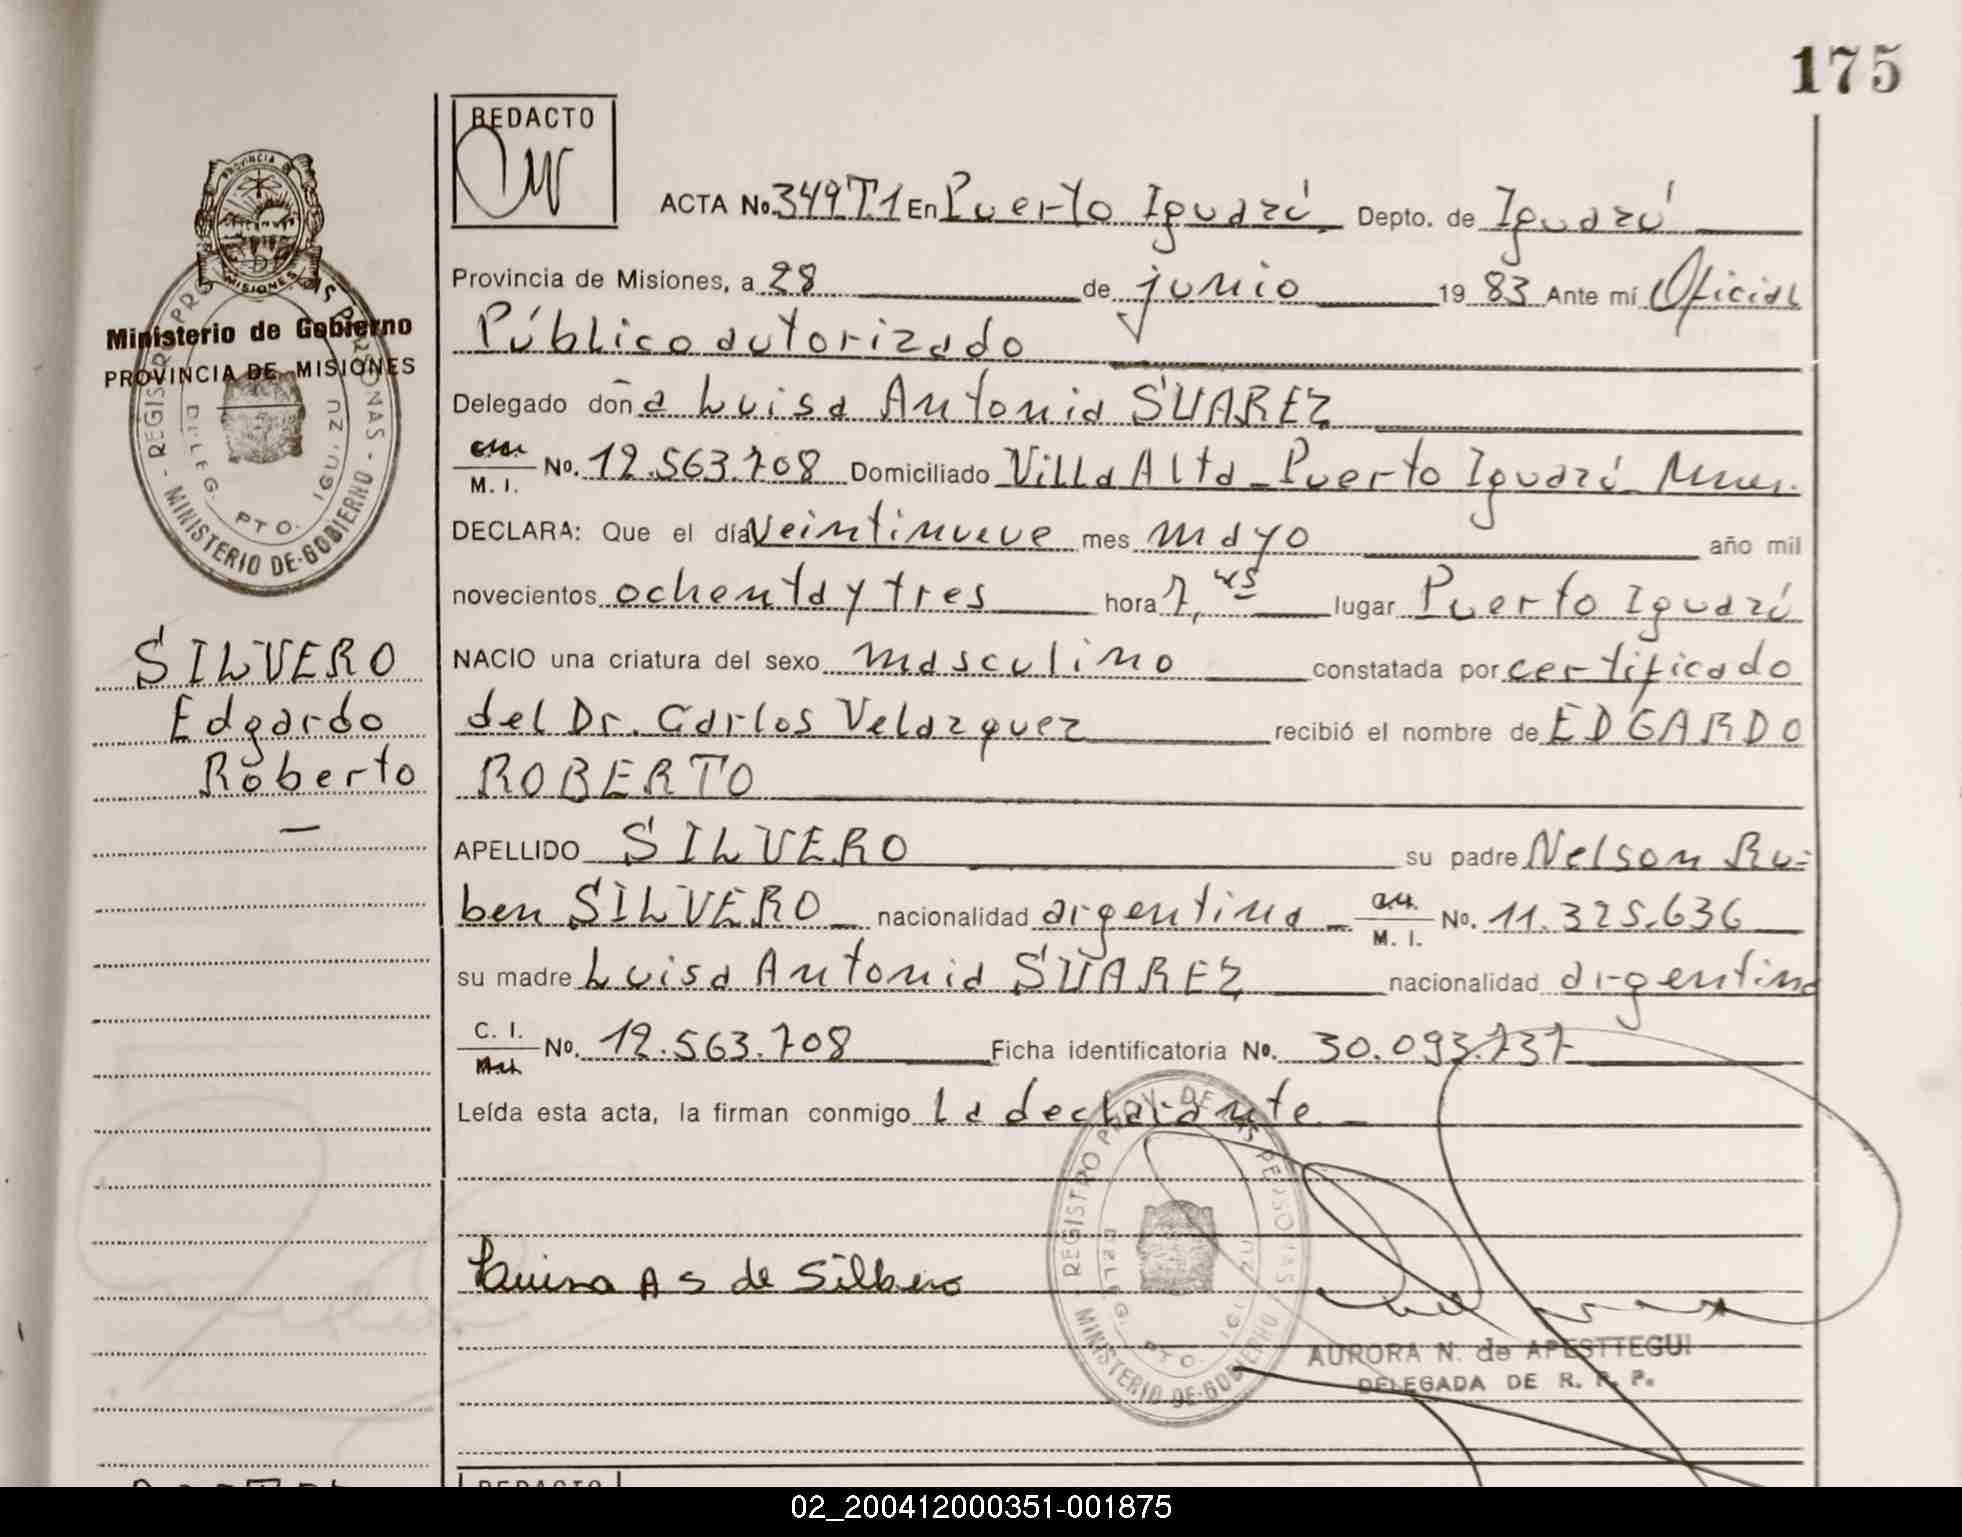 175
REDACTO
PROVINCIA DE
MISIONES
Ministerio de Gobierno
PROVINCIA DE MISIONES
MINISTERIO DE GOBIERNO
DELEG. PTO. IGUAZU
ACTA No. 349 T.1 En Puerto Iguazú Depto. de Iguazú
Provincia de Misiones, a 28 de junio 19 83 Ante mí Oficial
Público autorizado
Delegado doña Luisa Antonia SUAREZ
M. I. No. 12.563.708 Domiciliado Villa Alta_Puerto Iguazú_
DECLARA: Que el día veintinueve mes mayo año mil
novecientos ochenta y tres hora 7,45 lugar Puerto Iguazú
NACIO una criatura del sexo masculino constatada por certificado
del Dr. Carlos Velazquez recibió el nombre de EDGARDO
ROBERTO
APELLIDO SILVERO su padre Nelson Ru=
ben SILVERO_ nacionalidad argentina_ M. I. No. 11.325.636
su madre Luisa Antonia SUAREZ nacionalidad argentina
C. I. No. 12.563.708 Ficha identificatoria No. 30.093.737
Leída esta acta, la firman conmigo La declarante_
SILVERO
Edgardo
Roberto
—
Luisa A S de Silbero
REGISTRO PROV. DE LAS PERSONAS
MINISTERIO DE GOBIERNO
DELEG. PTO. IGUAZU
AURORA N. de APESTTEGUI
DELEGADA DE R. P. P.
REDACTO
02_200412000351-001875